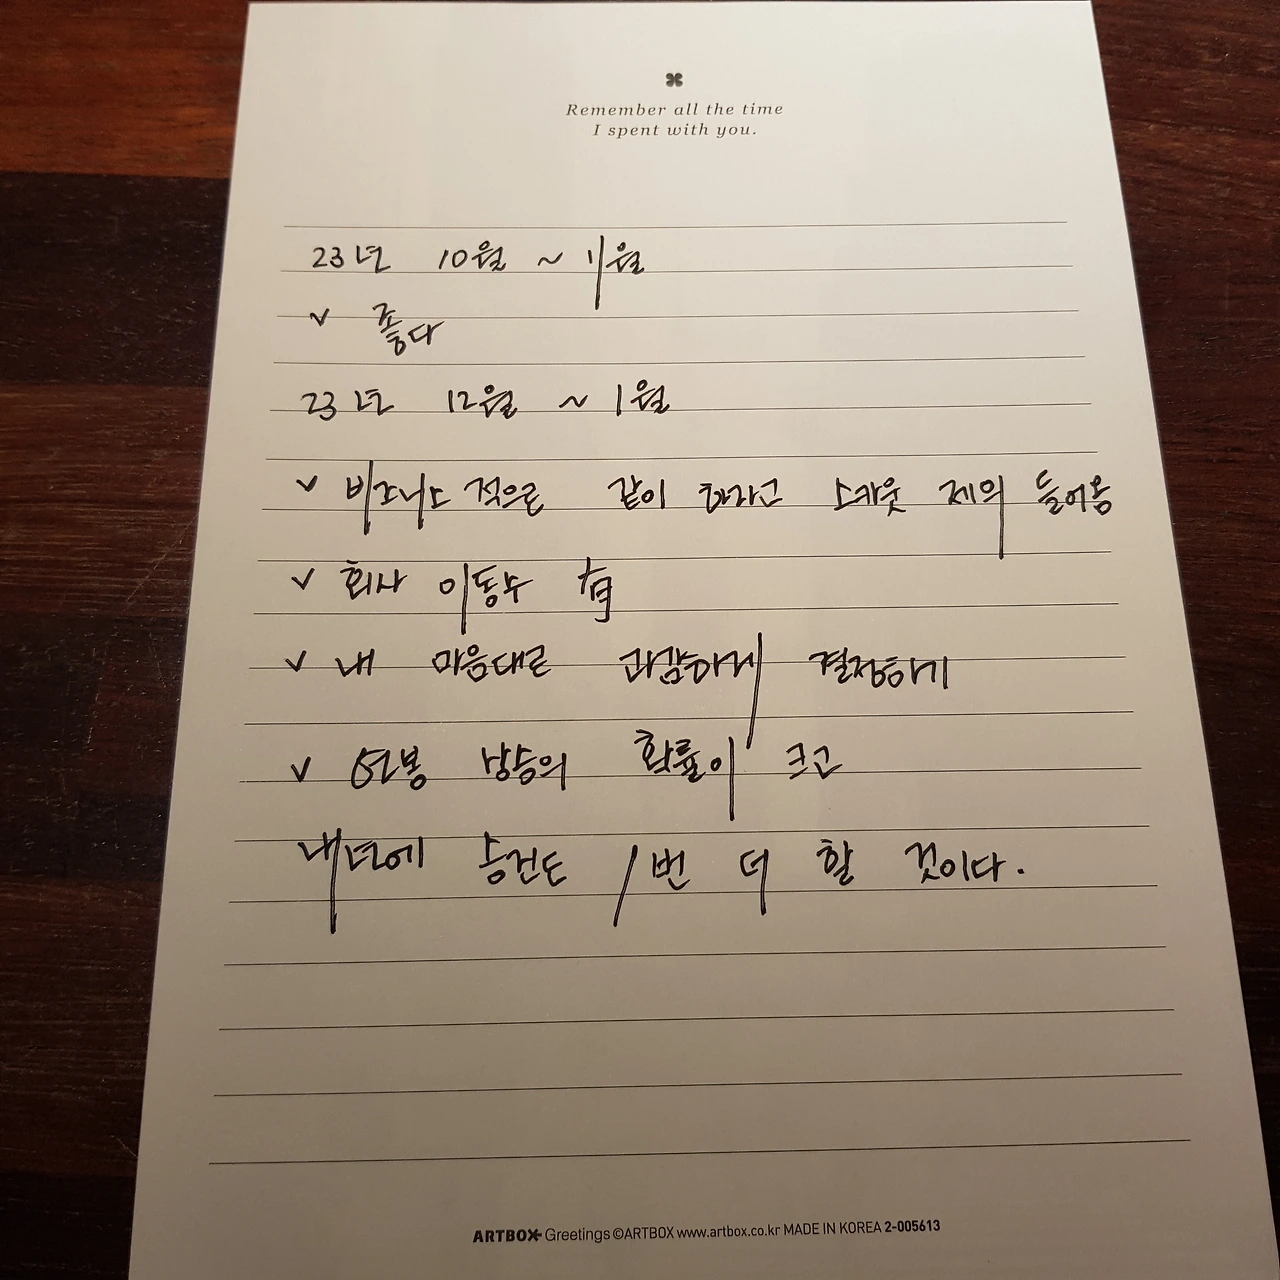 Remember all the time
I spent with you.
23년 10월 ~ 11월
✓ 좋다
23년 12월 ~ 1월
✓ 비즈니스적으로 같이 하자고 스카웃 제의 들어옴
✓ 회사 이동수 有
✓ 내 마음대로 과감하게 결정하기
✓ 연봉 상승의 확률이 크고
내년에 승건도 1번 더 할 것이다.
ARTBOX Greetings ©ARTBOX www.artbox.co.kr MADE IN KOREA 2-005613